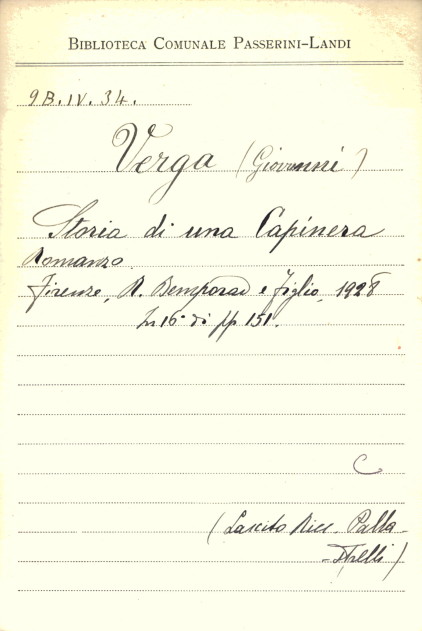 BIBLIOTECA COMUNALE PASSERINI-LANDI
9B.IV.34.
Verga (Giovanni)
Storia di una Capinera
Romanzo
Firenze, R. Bemporad e figlio, 1928
In 16° di pp 151.
C
(Lascito Ricc. Palla-
-strelli)